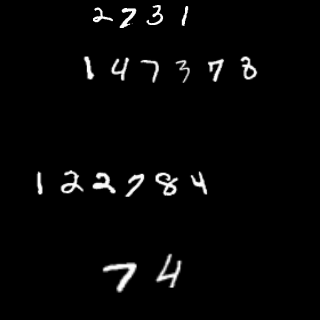 2731
147378
122784
74